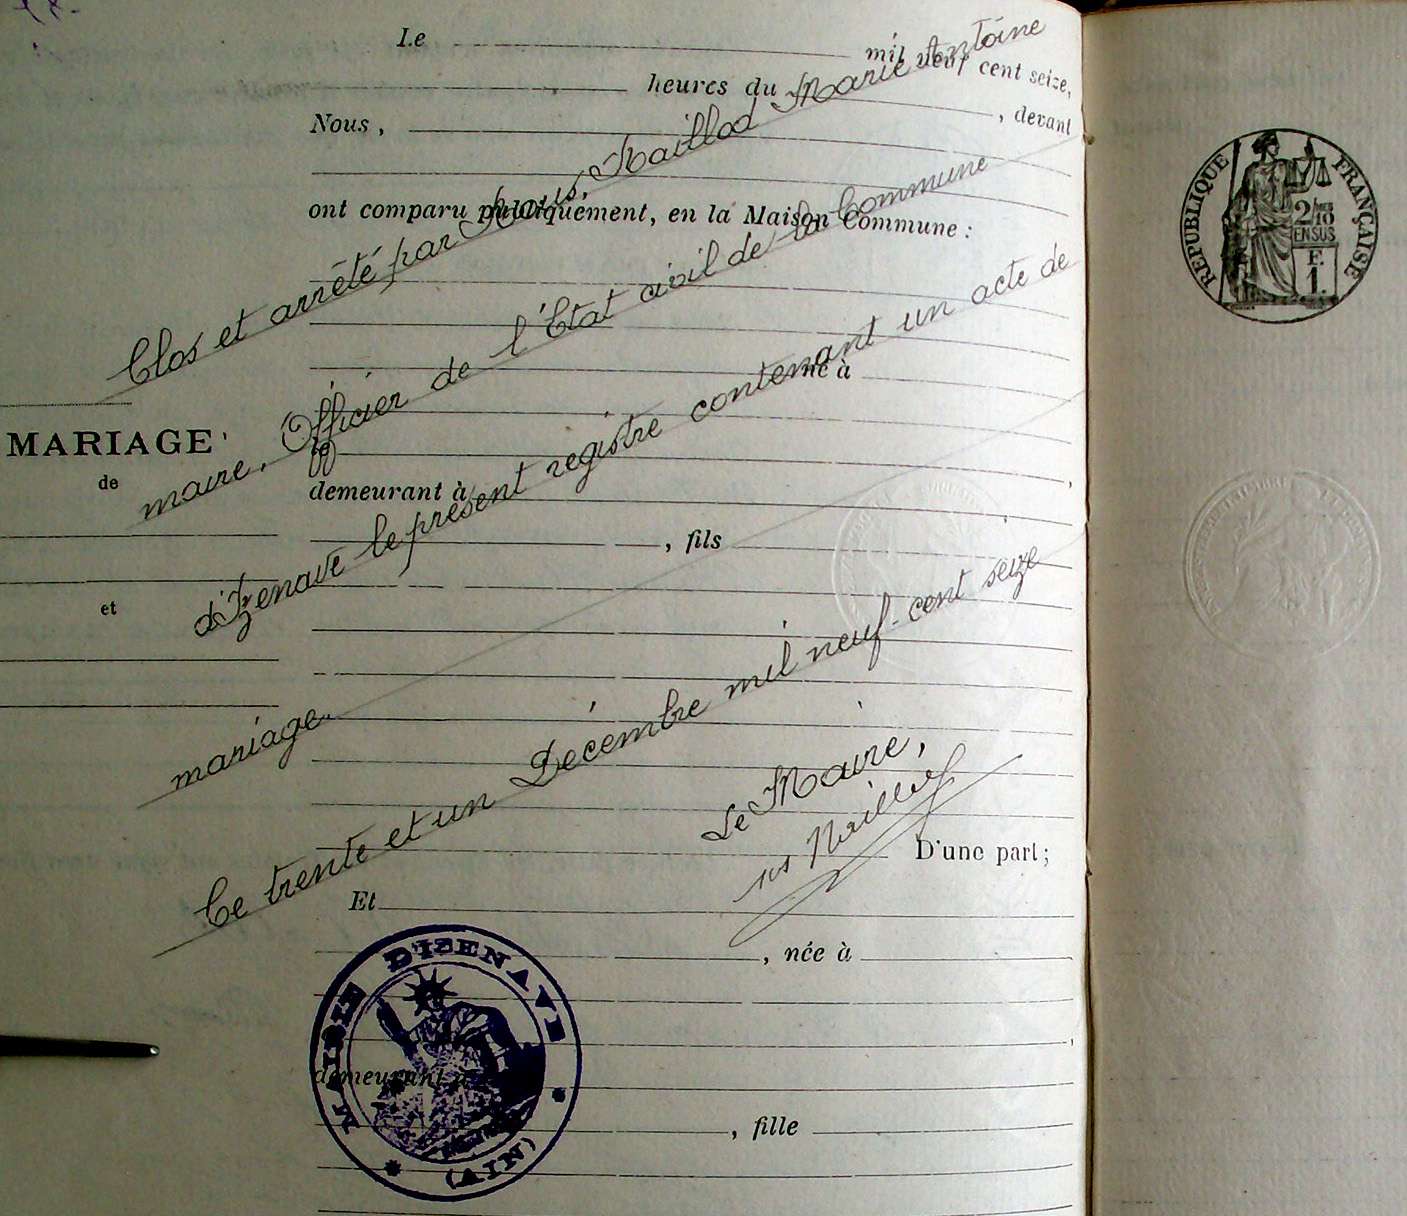 Le mil neuf cent seize,
heures du
Nous , , devant
ont comparu publiquement, en la Maison Commune :
né à
le
demeurant à ,
, fils
D'une part ;
Et
, née à
,
demeurant à
, fille
MARIAGE
de
et
Clos et arrêté par Nous, Maillod Marie Antoine
maire, Officier de l'Etat civil de la Commune
d'Izenave le présent registre contenant un acte de
mariage.
Ce trente et un Décembre mil neuf-cent seize
Le Maire,
MAIRIE D'IZENAVE
(AIN)
RÉPUBLIQUE FRANÇAISE
2/10
EN SUS
F.
1.